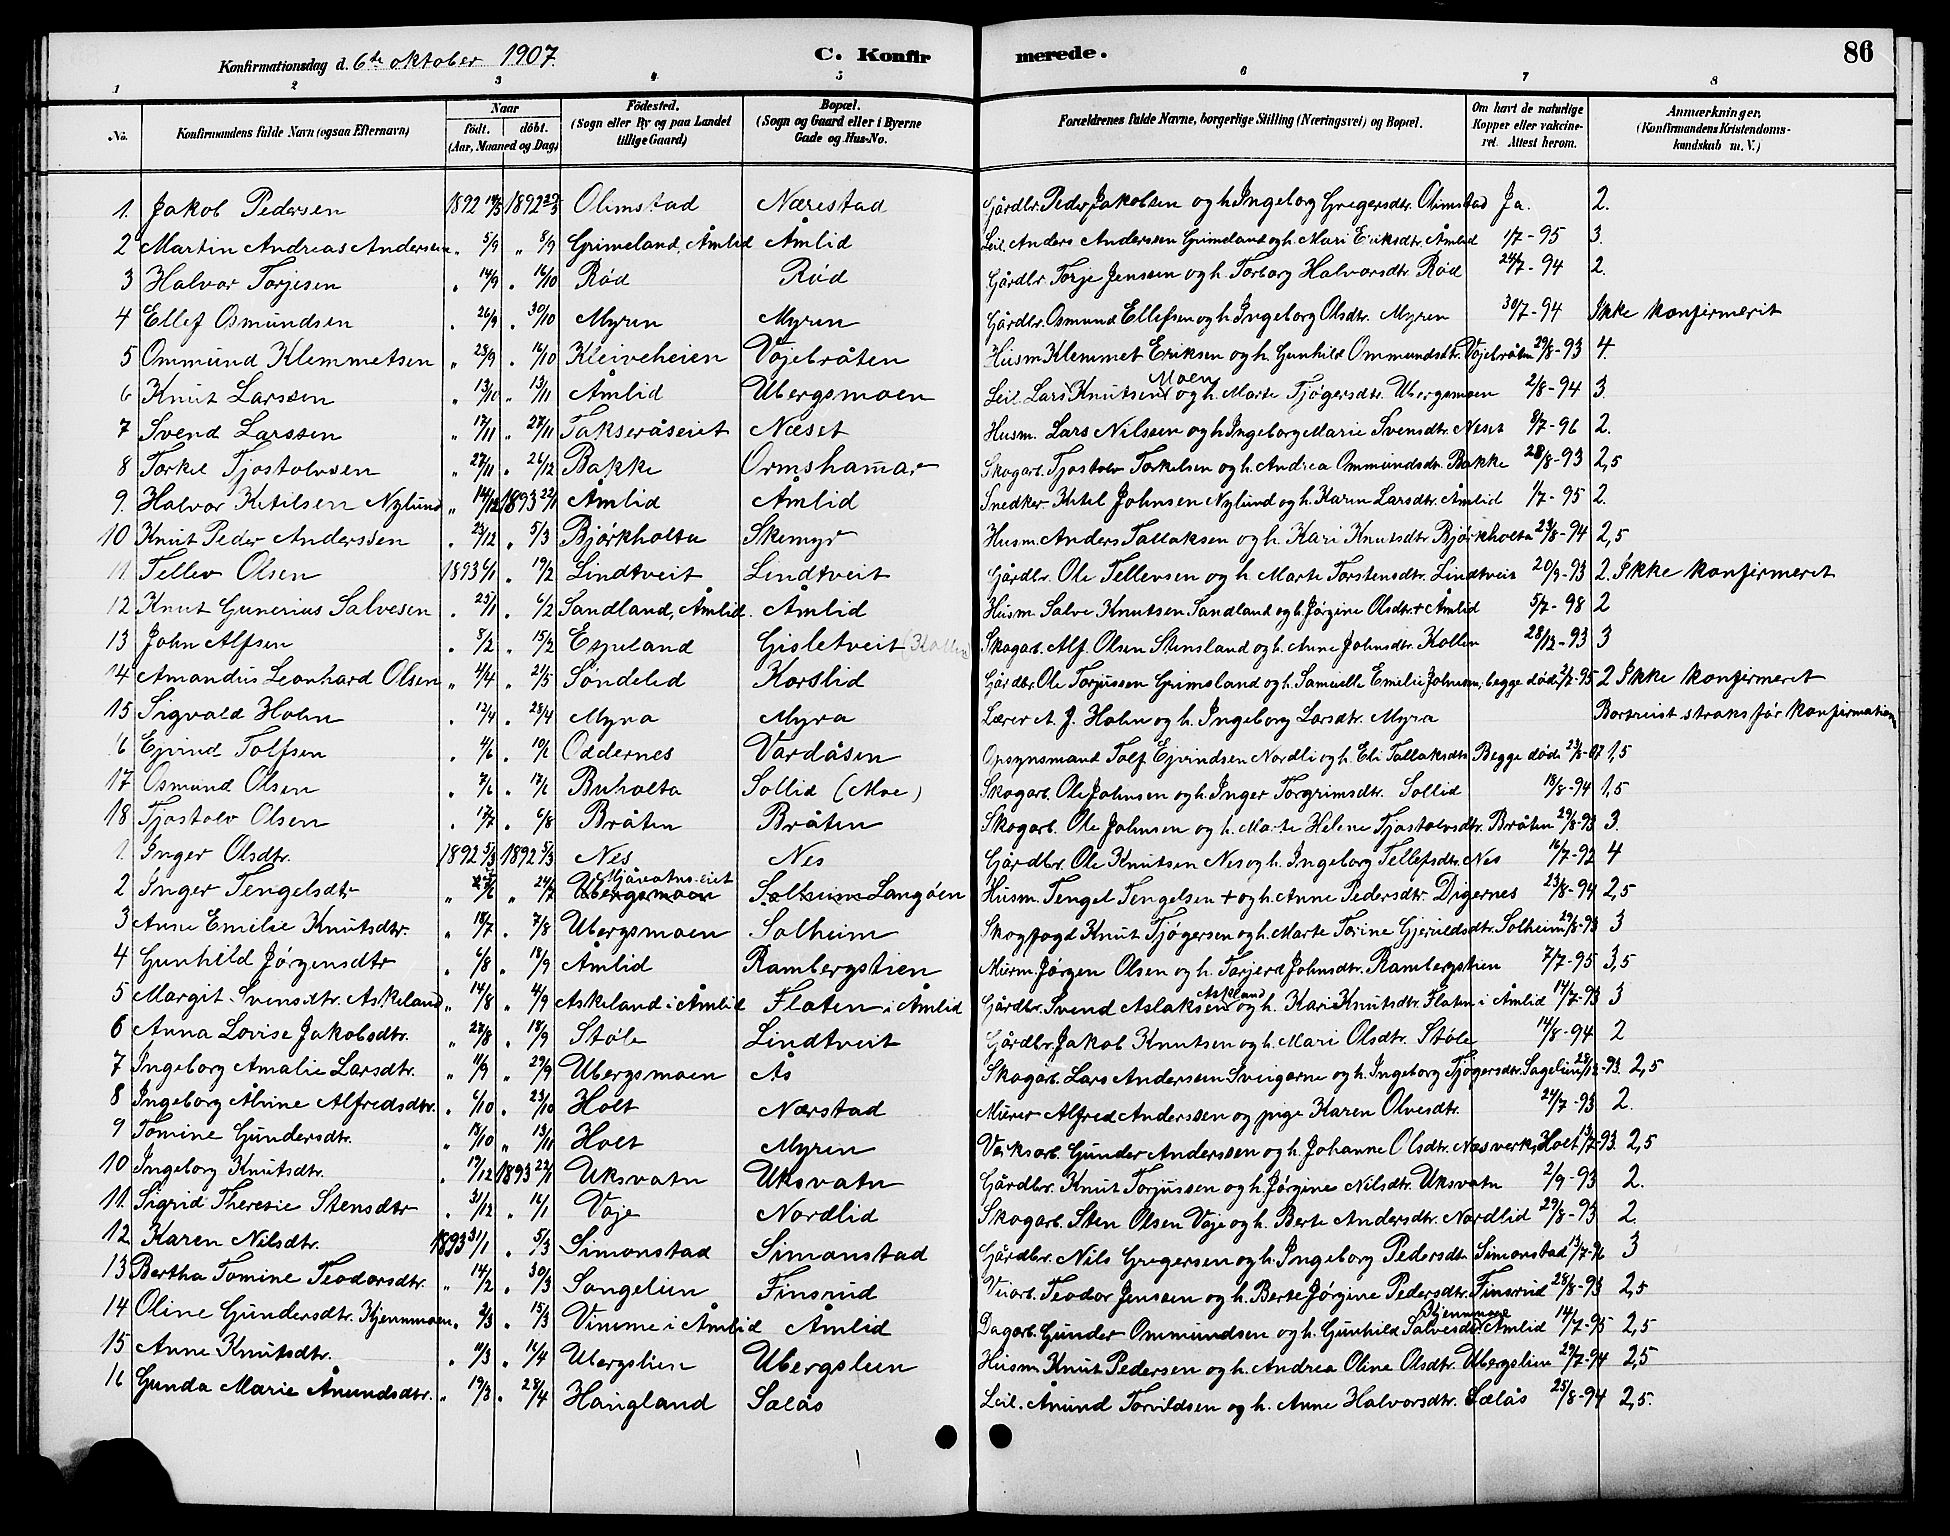 Konfirmationsdag d. 6te oktober 1907. C. Konfirmerede. 86
1 2 3 4 5 6 7 8
No. Konfirmandens fulde Navn (ogsaa Efternavn) Naar födt. döbt. (Aar, Maaned og Dag) Födested. (Sogn eller By og paa Landet tillige Gaard) Bopæl. (Sogn og Gaard eller i Byerne Gade og Hus-No. Forældrenes fulde Navne, borgerlige Stilling (Næringsvei) og Bopæl. Om havt de naturlige Kopper eller vakcineret. Attest herom. Anmærkninger. (Konfirmandens Kristendomskundskab m. V.)
1. Jakob Pedersen 1892 1892 Olimstad Nærestad Gårdbr. Peder Jakobsen og h. Ingeborg Gregersdtr. Olimstad Ja. 2.
2 Martin Andreas Andersen " 5/9 " 8/9 Grimeland, Åmlid Åmlid Leil. Anders Andersen Grimeland og h. Mari Eriksdtr. Åmlid 1/7-95 3.
3 Halvor Torjesen " 14/9 " 16/10 Rød Rød Gårdbr. Torje Jensen og h. Torborg Halvorsdtr. Rød 24/7-94 2.
4 Ellef Osmundsen " 26/9 " 30/10 Myren Myren Gårdbr. Osmund Ellefsen og h. Ingeborg Olsdtr. Myren 30/7-94 Ikke konfirmerit
5 Ommund Klemmetsen " 28/9 " 16/10 Kleiveheien Vøjebråten Husm. Klemmet Eriksen og h. Gunhild Ommundsdtr. Vøjebråten 29/8-93 4.
6 Knut Larssen " 13/10 " 13/11 Åmlid Ubergsmoen Leil. Lars Knutsen Moen og h. Marte Tjøgersdtr. Ubergsmoen 2/8-94 3.
7 Svend Larssen " 17/11 " 27/11 Takseråseiet Næset Husm. Lars Nilssen og h. Ingeborg Marie Svensdtr. Neset 8/7-96 2.
8 Torkel Tjostolvsen " 27/11 " 26/12 Bakke Ormshammar Skogarb. Tjostolv Torkelsen og h. Andrea Ommundsdtr. Bakke 28/8-93 2,5
9. Halvor Ketilsen Nylund " 14/12 1893 22/1 Åmlid Åmlid Snedker Ketel Johnsen Nylund og h. Karen Larsdtr. Åmlid 1/7-95 2.
10 Knut Peder Anderssen " 23/12 " 5/3 Bjørkholta Skemyr Husm. Anders Tallaksen og h. Kari Knutsdtr. Bjørkholta 23/8-94 2,5
11. Tellev Olsen 1893 6/1 " 19/2 Lindtveit Lindtveit Gårdbr. Ole Tellevsen og h. Marte Torstensdtr. Lindtveit 20/9-93 2. Ikke konfirmeret
12 Knut Gunerius Salvesen " 25/1 " 6/2 Sandland, Åmlid. Åmlid Husm. Salve Knutsen Sandland og h. Jørgine Olsdtr. + Åmlid 5/7-98 2
13 John Alfsen " 8/2 " 15/2 Espeland Gisletveit (Kollen) Skogarb. Alf Olsen Stensland og h. Anne Johnsdtr. Kollen 28/12-93 3
14 Amandus Leonhard Olsen " 4/4 " 2/5 Søndeled Korslid Gårdbr. Ole Torjussen Grimsland og h. Samuelle Emelie Johnsen, begge døde 2/7-95 2 Ikke konfirmeret
15 Sigvald Holm " 12/4 " 28/4 Myra Myra Lærer A. J. Holm og h. Ingeborg Larsdtr. Myra Bortreist straks før konfirmation
16 Ejvind Tolfsen " 4/6 " 10/6 Oddernes Vardåsen Opsynsmand Tolf Ejvindsen Nordli og h. Eli Tallaksdtr. Begge døde 23/8-07 1,5
17 Osmund Olsen " 7/6 " 17/6 Buholta Sollid (Moe) Skogarb. Ole Johnsen og h. Inger Torgrimsdtr. Sollid 18/8-94 1,5
18 Tjostolv Olsen " 17/7 " 6/8 Bråten Bråten Skogarb. Ole Johnsen og h. Marte Helene Tjostolvsdtr. Bråten 29/8-93 3.
1. Inger Olsdtr. 1892 5/3 1892 5/3 Nes Nes Gårdbr. Ole Knutsen Nes og h. Ingeborg Tellefsdtr. Nes 16/7-92 4
2 Inger Tengelsdtr " " 24/7 Ubergsmoen Mjåvatns-eiet Solheim Langøen Husm. Tengel Tengelsen + og h. Anne Pedersdtr. Digernes 23/8-94 2,5
3 Anne Emilie Knutsdtr. " 18/7 " 7/8 Ubergsmoen Solheim Skogfogd Knut Tjøgersen og h. Marte Torine Gjeruldsdtr. Solheim 29/8-93 3
4 Gunhild Jørgensdtr " 6/8 " 18/9 Åmlid Rambergstien Murm. Jørgen Olsen og h. Torjerd Johnsdtr. Rambergstien 7/7-95 3,5
5 Margit Svensdtr. Askeland " 14/8 " 4/9 Askeland i Åmlid Flaten i Åmlid Gårdbr. Svend Aslaksen Askland og h. Kari Knutsdtr. Flaten i Åmlid 14/7-93 3
6 Anna Lovise Jakobsdtr. " 28/8 " 18/9 Støle Lindtveit Gårdbr. Jakob Knutsen og h. Mari Olsdtr. Støle 14/8-94 2
7 Ingeborg Amalie Larsdtr. " 11/9 " 29/9 Ubergsmoen Ås Skogarb. Lars Andersen Sveigerne og h. Ingeborg Tjøgersdtr. Sagelien 28/12-93. 2,5
8 Ingeborg Alvine Alfredsdtr. " 6/10 " 23/10 Holt Nærstad Murer Alfred Anderssen og pige Karen Olvesdtr. 24/7-93 2.
9 Tomine Gundersdtr. " 13/10 " 13/11 Holt Myren Verksarb. Gunder Anderssen og h. Johanne Olsdtr. Næsverk, Holt 13/7-93. 2,5
10 Ingeborg Knutsdtr. " 19/12 1893 22/1 Uksvatn Uksvatn Gårdbr. Knut Torjussen og h. Jørgine Nilsdtr. Uksvatn 2/9-93 2.
11. Sigrid Theresie Stensdtr " 31/12 " 16/1 Voje Nordlid Skogarb. Sten Olsen Voje og h. Berte Andersdtr. Nordlid 29/8-93 2.
12 Karen Nilsdtr. 1893 31/1 " 5/3 Simonstad Simonstad Gårdbr. Nils Gregersen og h. Ingeborg Pedersdtr. Simonstad 13/7-96 3
13 Bertha Tomine Teodorsdtr. " 14/2 " 30/3 Songelien Finsrud Veiarb. Teodor Jensen og h. Berte Jørgine Pedersdtr. Finsrud 28/8-93 2,5
14 Oline Gundersdtr. Hjemmoen " 2/3 " 15/3 Vimme i Åmlid Åmlid Dagarb. Gunder Ommundsen og h. Gunhild Salvesdtr. Åmlid 14/7-95 2,5
15 Anne Knutsdtr. " 11/3 " 16/4 Ubergslien Ubergslien Husm. Knut Pedersen og h. Andrea Oline Olsdtr. Ubergslien 29/7-94 2,5
16 Gunda Marie Ånundsdtr. " 19/3 " 28/4 Haugland Selås Leil. Ånund Torvildsen og h. Anne Halvorsdtr. Selås 25/8-94 2,5.